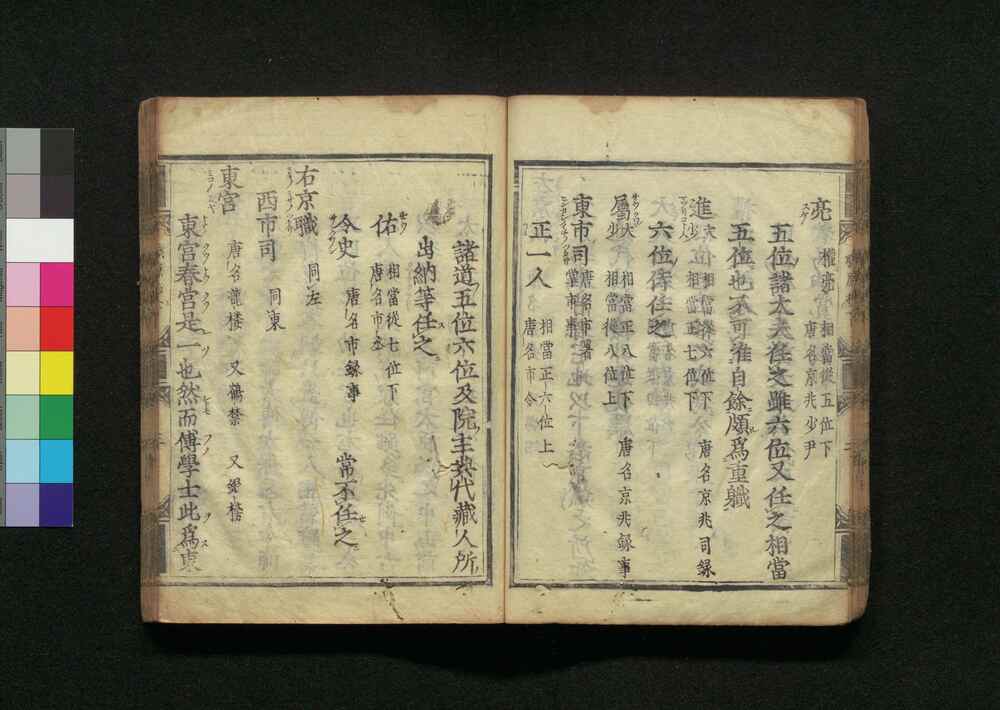 亮 權亮 相當從五位下
唐名京兆少尹
五位諸大夫任之雖六位又任之相當
五位也不可准自餘頗爲重職
進 大 相當從六位下 唐名京兆司録
少 相當正七位下
六位侍任之
屬 大 相當正八位下 唐名京兆録事
少 相當從八位上
東市司 唐名市署
正一人 相當正六位上
唐名市令
諸道五位六位及院主典代藏人所
出納等任之
佑 相當從七位下
唐名市丞
令史 唐名市録事 常不任之
右京職 同左
西市司 同東
東宮 唐名龍樓 又鶴禁 又
東宮春宮是一也然而傅學士此爲東